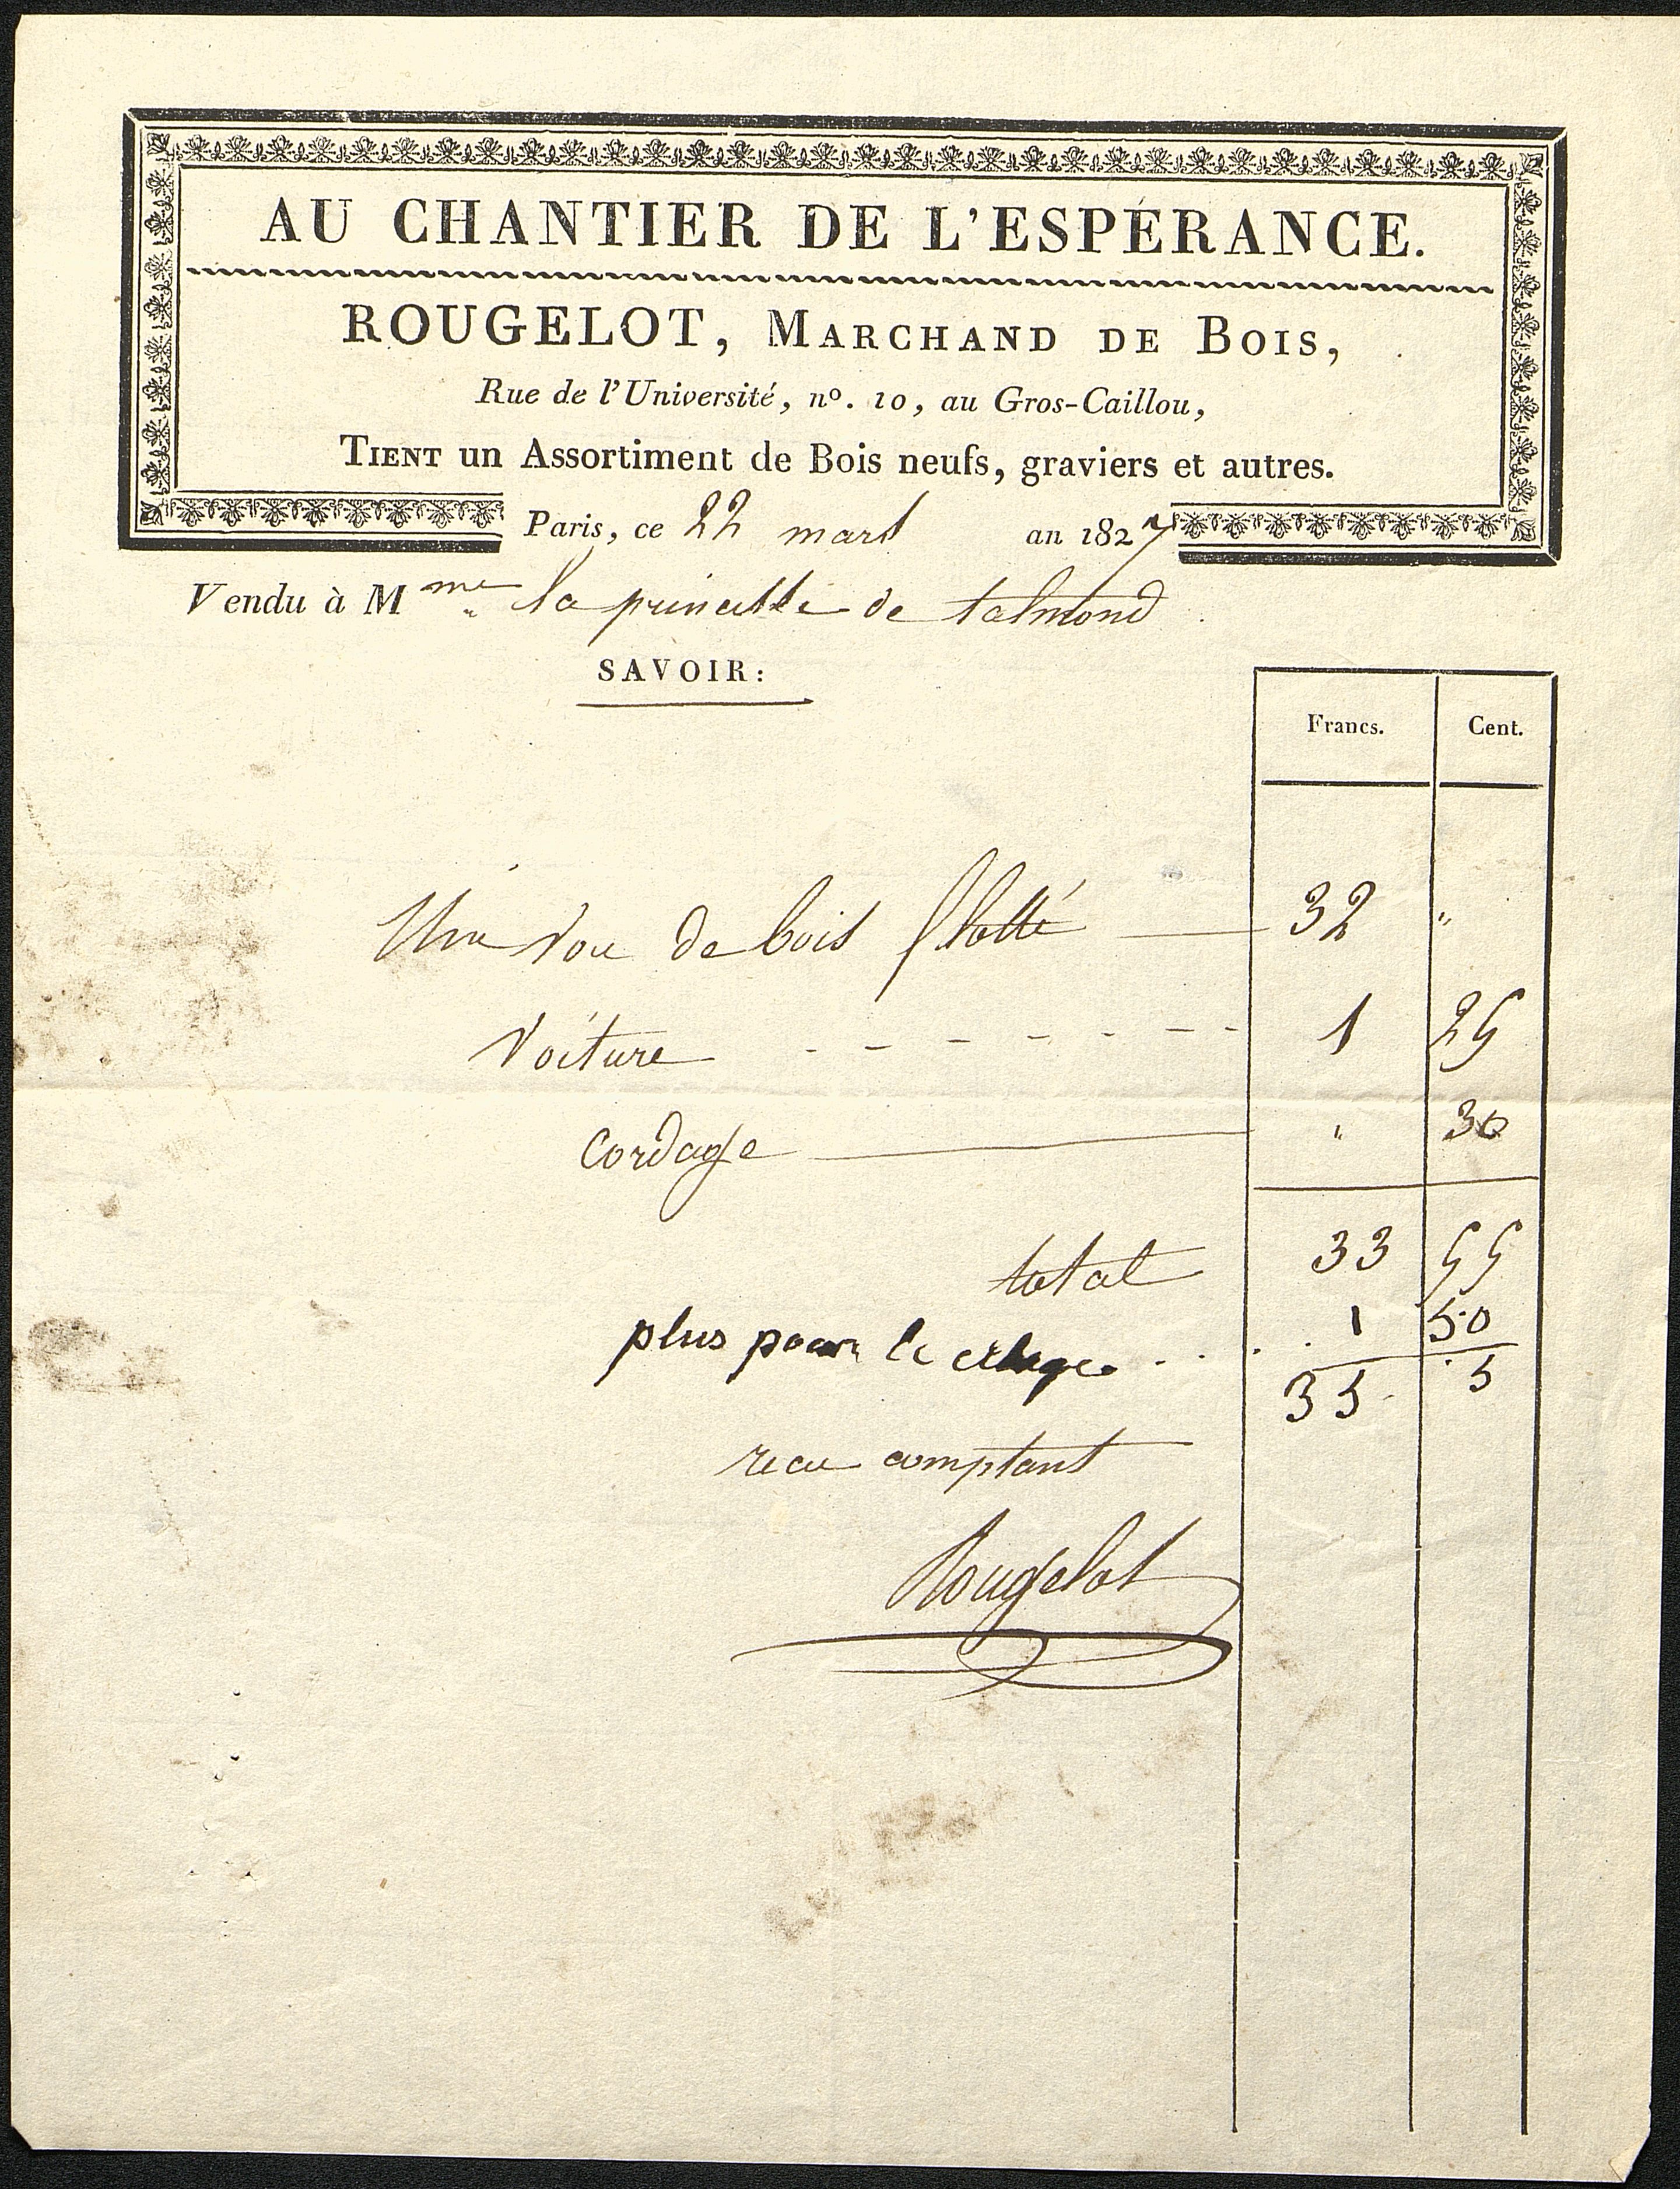 AU CHANTIER DE L'ESPÉRANCE.
ROUGELOT, MARCHAND DE BOIS,
Rue de l'Université, nº. 10, au Gros-Caillou,
TIENT un Assortiment de Bois neufs, graviers et autres.
Paris, ce 22 mars an 1827
Vendu à Mme la princesse de talmond
SAVOIR:
Francs. Cent.
Une voie de bois flotté 32 "
Voiture - - - - - - - 1 25
Cordage " 30
total 33 55
plus pour le . . . . 1 50
35 5
recu comptant
Rougelot